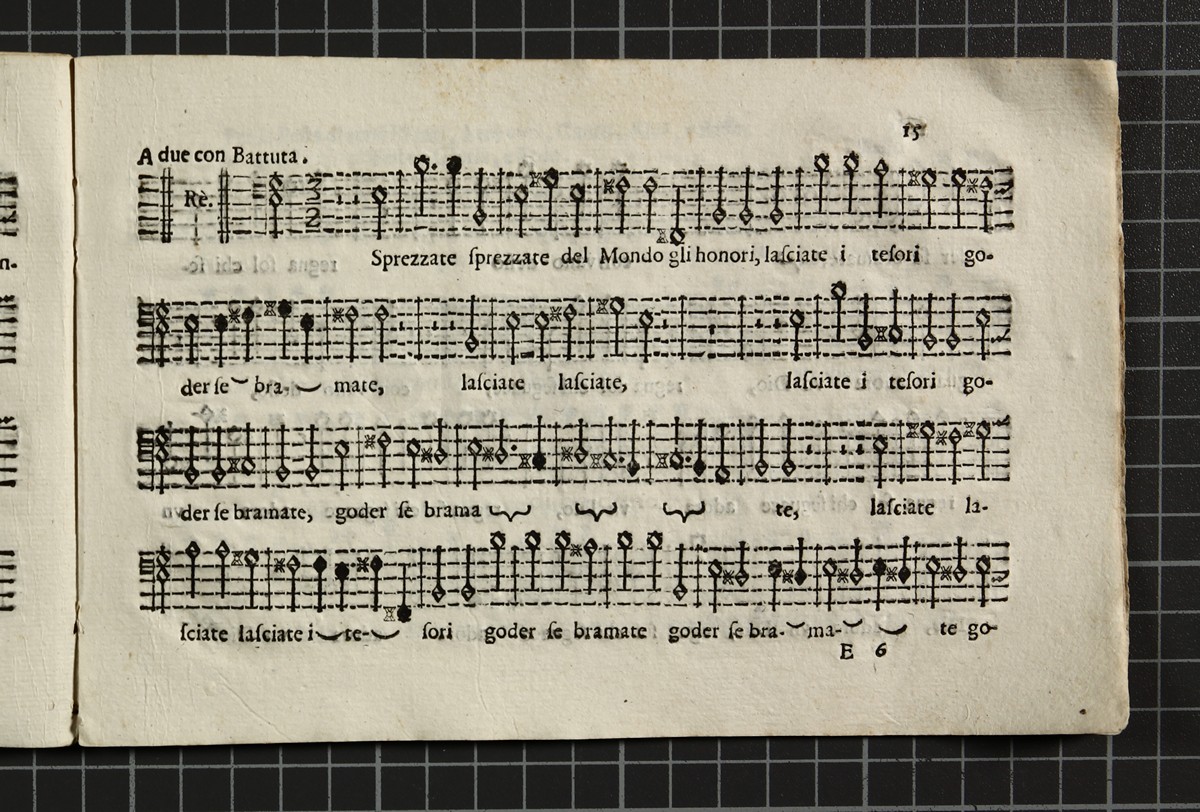 15
A due con Battuta.
Rè.
3
2
Sprezzate ſprezzate del Mondo gli honori, laſciate i teſori go-
der ſe bra- mate, laſciate laſciate, laſciate i teſori go-
der ſe bramate, goder ſe brama te, laſciate la-
ſciate laſciate i te- ſori goder ſe bramate goder ſe bra- ma- te go-
E 6